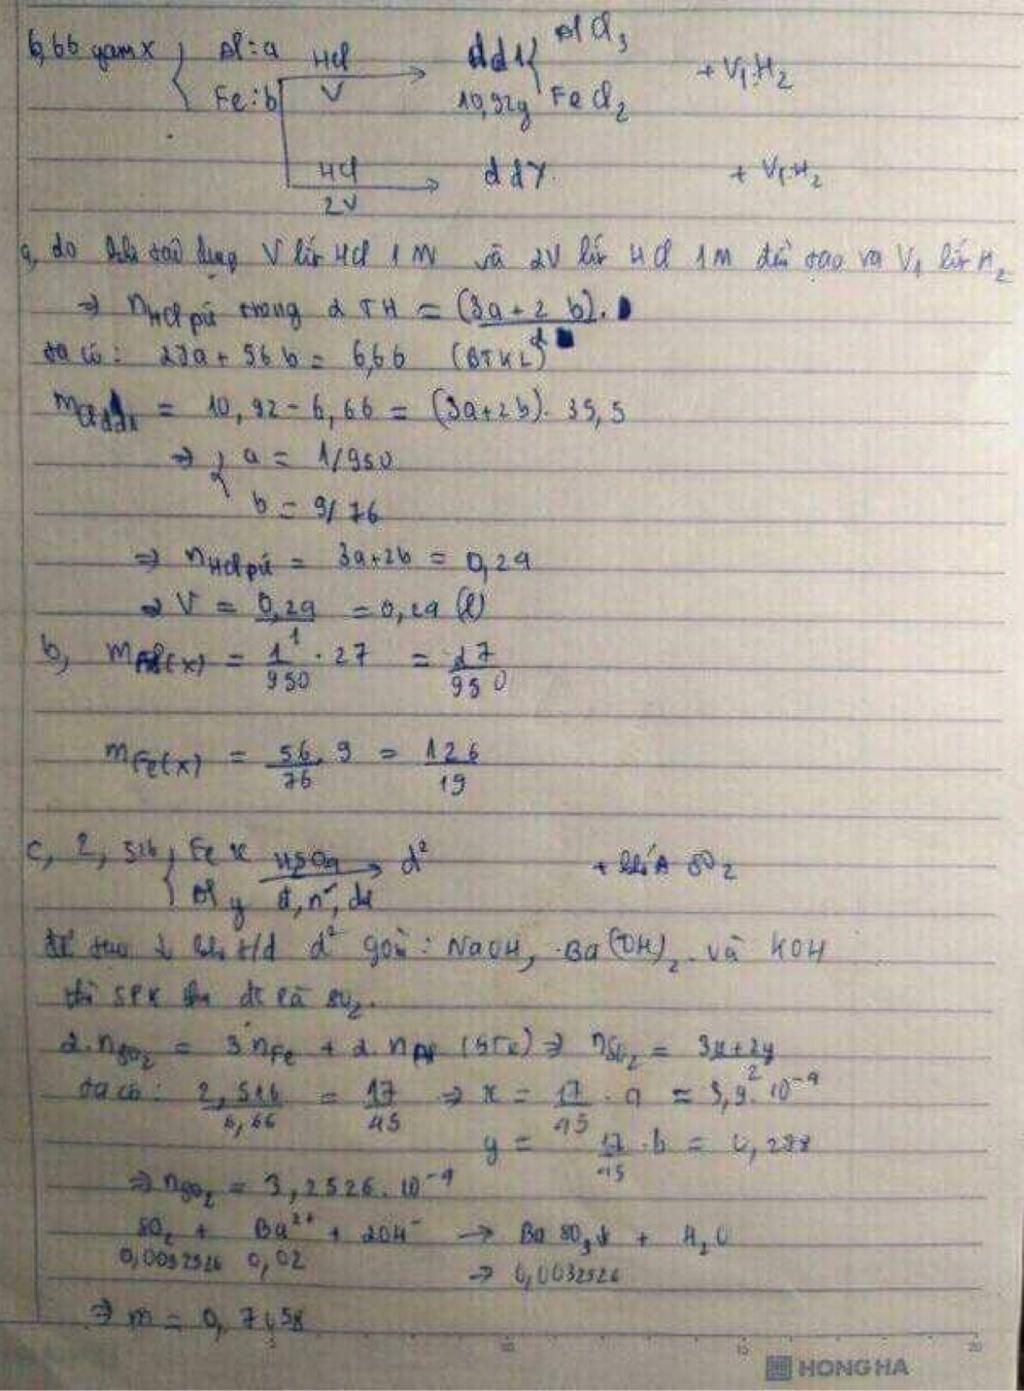 6,66 gam X { Al: a HCl → dd1 { AlCl3 + V1: H2
Fe: b V 10,92g FeCl2
HCl → ddY. + V1: H2
2V
a, do khi dùng V lít HCl 1M và 2V lít HCl 1M đều tạo ra V1 lít H2
⇒ nHCl pứ trong 2 TH = (3a + 2b).
ta có: 27a + 56b = 6,66 (BTKL)
= 10,92 - 6,66 = (3a+2b). 35,5
⇒ { a = 1/950
b = 9/76
⇒ nHCl pứ = 3a+2b = 0,24
⇒ V = 0,24 / 1 = 0,24 (l)
b, mAl(X) = 1/950 . 27 = 27/950
mFe(X) = 56/76 . 9 = 126/19
c, 2,516 { Fe x H2SO4 → d² + khí A SO2
Al y đ, n°, dư
để tạo ↓ khi t/d d² gồm: NaOH, Ba(OH)2 và KOH
thì SPK là SO2.
2.nSO2 = 3nFe + 2.nAl (BTe) ⇒ nSO2 = (3x+2y)/2
ta có: 2,516/6,66 = 17/45 ⇒ x = 17/45 . a = 3,9. 10⁻⁴
y = 17/45 . b =
⇒ nSO2 = 3,2526. 10⁻⁴
SO2 + Ba²⁺ + 2OH⁻ → BaSO3↓ + H2O
0,0032526 0,02 → 0,0032526
⇒ m =
HONG HA